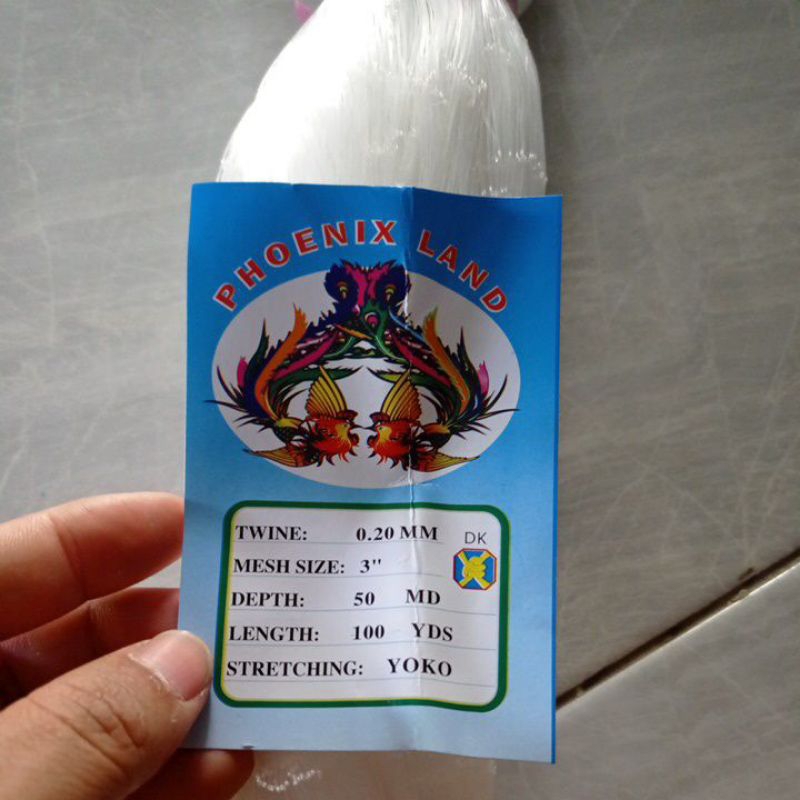 PHOENIX LAND
TWINE: 0.20 MM
DK
MESH SIZE: 3"
DEPTH: 50 MD
LENGTH: 100 YDS
STRETCHING: YOKO